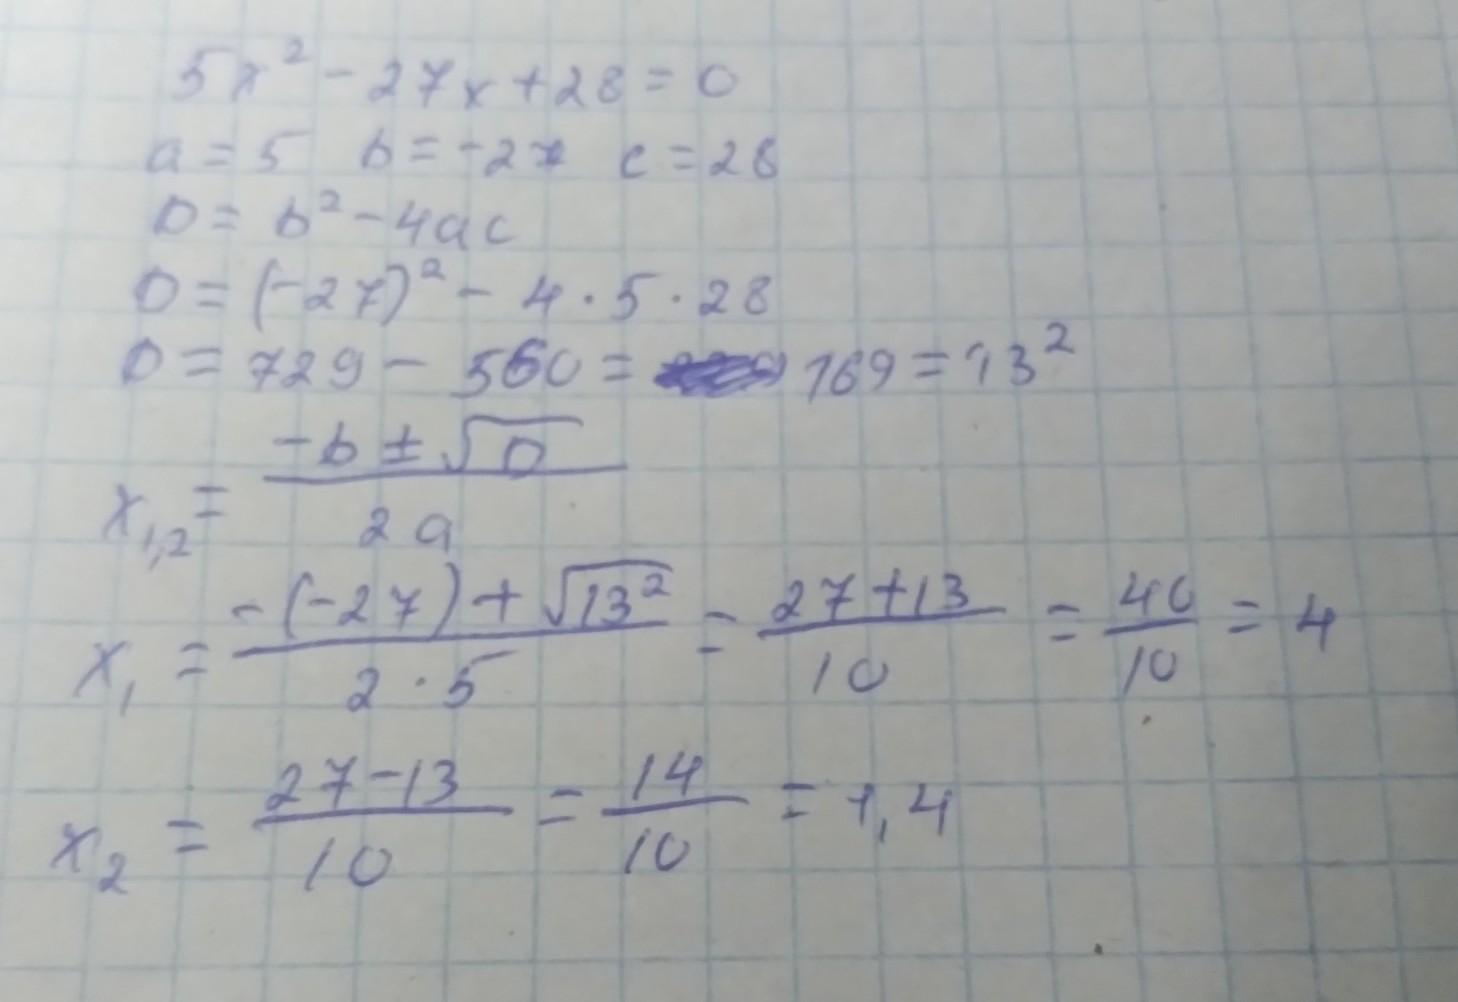 5x² - 27x + 28 = 0
a = 5 b = -27 c = 28
D = b² - 4ac
D = (-27)² - 4 · 5 · 28
D = 729 - 560 = 169 = 13²
x₁,₂ = (-b ± √D) / 2a
x₁ = (-(-27) + √13²) / (2 · 5) = (27 + 13) / 10 = 40 / 10 = 4
x₂ = (27 - 13) / 10 = 14 / 10 = 1,4